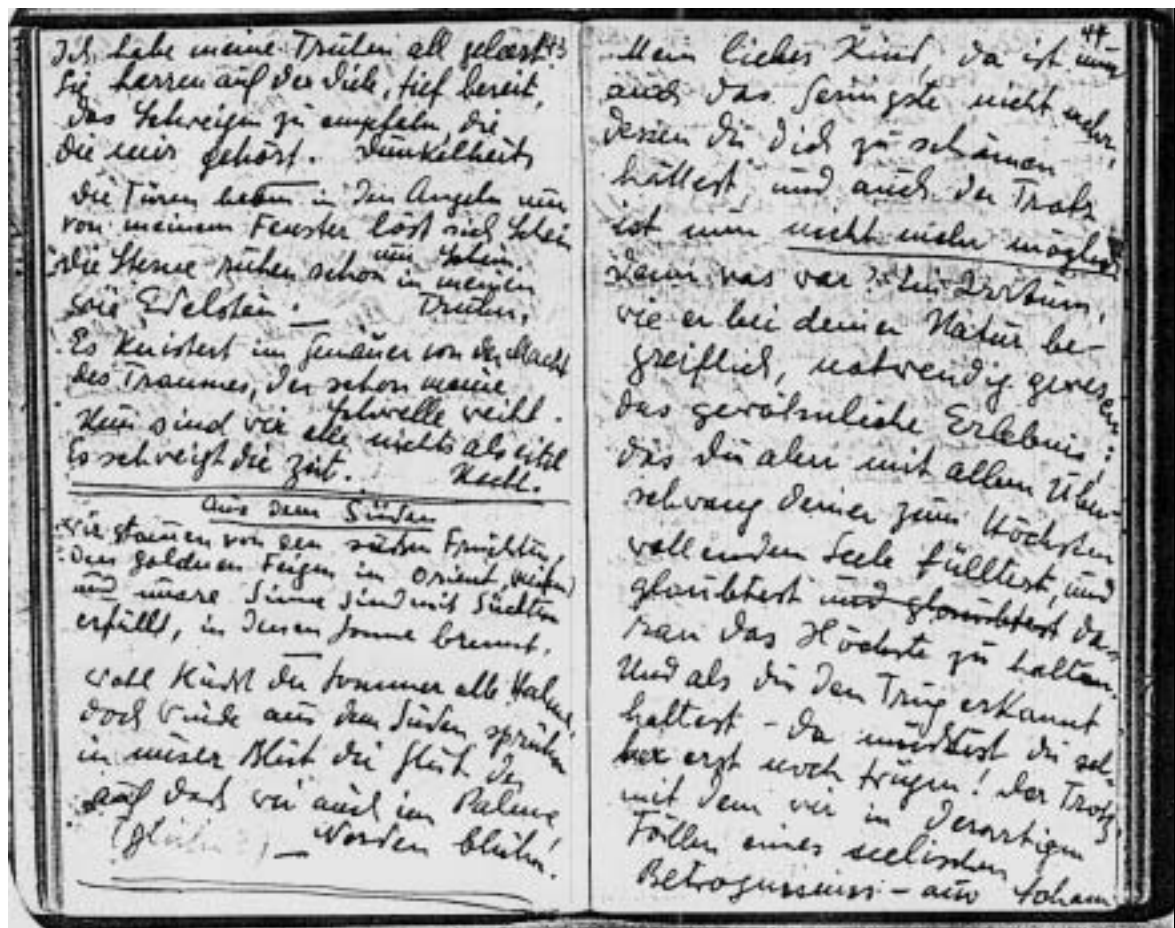 43
Ich habe meine Truhen all geleert
Sie harren auf der Diele, tief bereit,
das Schweigen zu empfahn, die
die mir gehört. Dunkelheit
Die Türen beben in den Angeln nun
von meinem Fenster löst sich Schein
um Schein.
Die Sterne ruhen schon in meinen
wie Edelstein. Truhn,
Es knistert im Gemäuer von der Macht
des Traumes, der schon meine
Schwelle weiht.
Nun sind wir alle nichts als eitel
Es schweigt die Zeit. Nacht.
Aus dem Süden
Wir stammen von den süssen Früchten,
Den goldnen Feigen im Orient,
und unsre Sinne sind mit Süchten
erfüllt, in denen Sonne brennt.
Wohl küsst der Sommer alle Halme,
doch Winde aus dem Süden sprühn
in unser Blut die Glut der
auf dass wir auch im Palme
(glühn?) Norden blühn!
44
Mein liebes Kind, da ist nun
auch das Geringste nicht mehr,
dessen du dich zu schämen
hättest, und auch der Trotz
ist nun nicht mehr möglich
Denn was war? Ein Irrtum,
wie er bei deiner Natur be-
greiflich, notwendig gewesen:
das gewöhnliche Erlebnis,
das du aber mit allem Über-
schwang deiner zum Höchsten
wollenden Seele fülltest, und
glaubtest und glaubtest da-
ran das Höchste zu halten.
Und als du den Trug erkannt
hattest – da musstest du sel-
ber erst noch trügen! Der Trotz,
mit dem wir in derartigen
Fällen eines seelischen
Betrogenseins – aus Scham